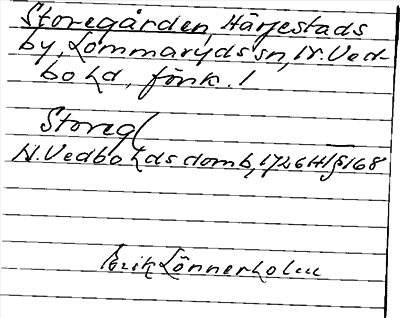 Storegården, Härjestads
by, Lommaryds sn, N. Ved-
bo hd, Jönk. l
Storeg(
N. Vedbo hds domb, 1726 Ht § 168
Erik Lönnerholm